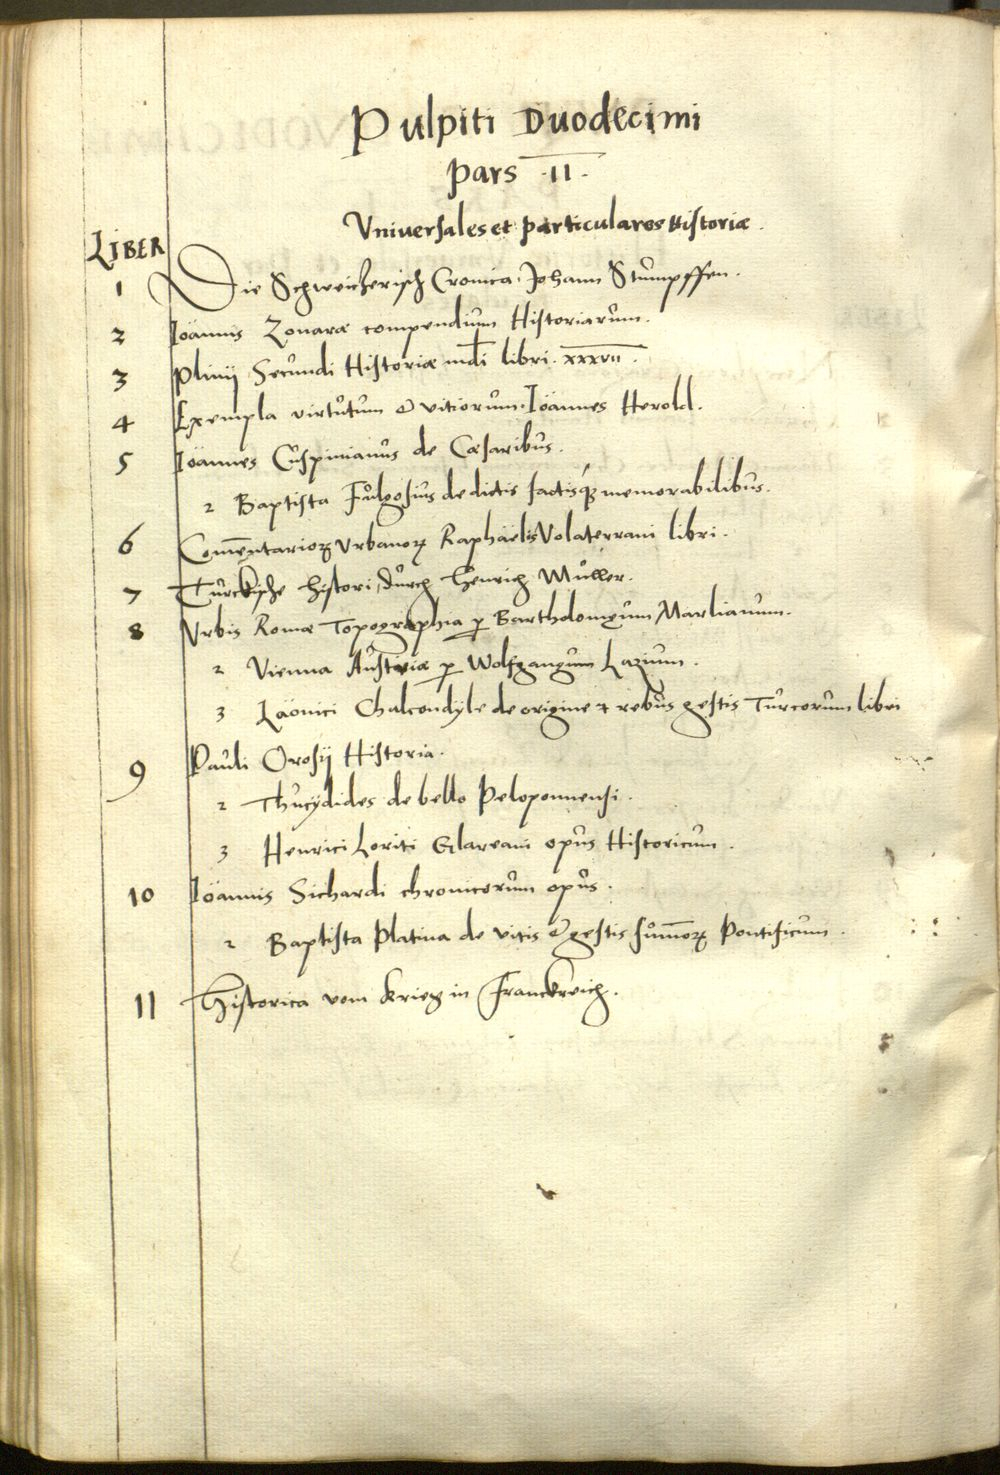 Pulpiti Duodecimi
Pars ·II·
Vniuersales et particulares Historiæ.
LIBER
1 Die Schweitzerisch Cronica, Johann Stumpffen.
2 Ioannis Zonaræ compendium Historiarum.
3 Plinij Secundi Historiæ mūdi libri xxxvii.
4 Exempla virtutum & vitiorum. Ioannes Herold.
5 Ioannes Cuspinianus de Cæsaribus.
2 Baptista Fulgosius de dictis factisqꝫ memorabilibus.
6 Com̄entarioꝝ Vrbanoꝝ Raphaëlis Volaterrani libri.
7 Turckische histori, durch Henrich Müller.
8 Vrbis Romæ Topographia ꝑ Bartholomęum Marlianum.
2 Vienna Austriæ ꝑ Wolfgangum Lazium.
3 Laonici Chalcondyle de origine & rebus gestis Turcorum libri
9 Pauli Orosij Historia.
2 Thucydides de bello Peloponnensi.
3 Henrici Loriti Glareani opus Historicum.
10 Ioannis Sichardi chronicorum opus.
2 Baptista Platina de vitis & gestis sum̄oꝝ Pontificum.
11 Historica vom Krieg in Franckreich.